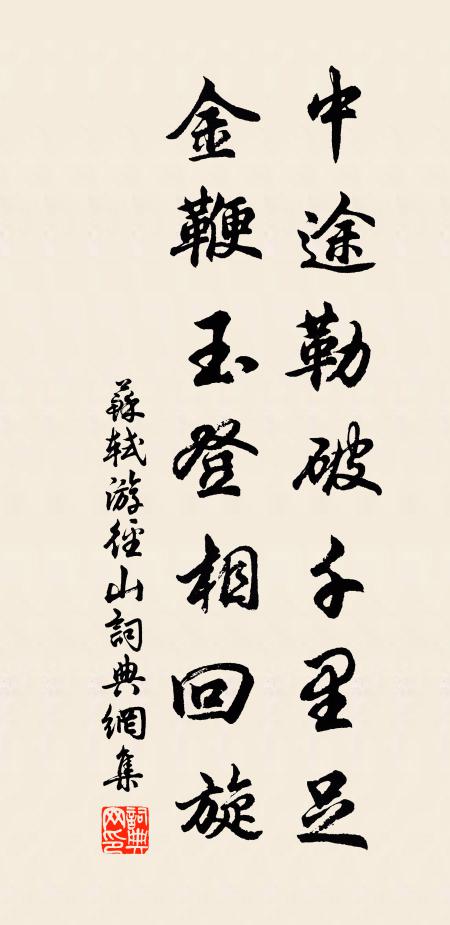 中途勒破千里足
金鞭玉登相回旋
蘇軾游徑山詞典網集
詞典网印